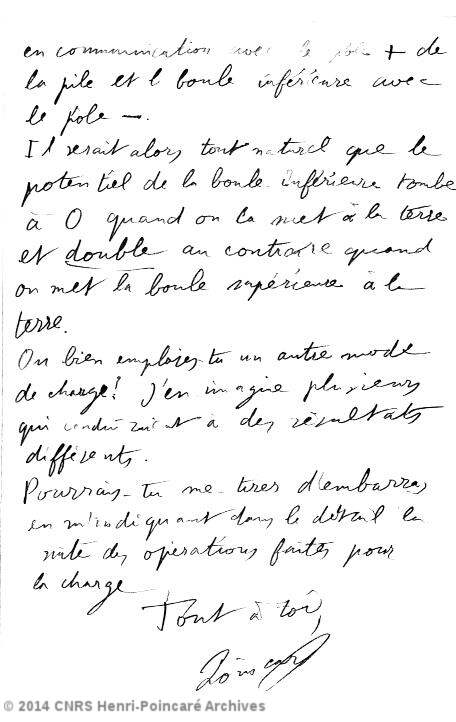 en communication avec le pole + de
la pile et l boule inférieure avec
le pole —.
Il serait alors tout naturel que le
potentiel de la boule inférieure tombe
à 0 quand on la met à la terre
et double au contraire quand
on met la boule supérieure à la
terre.
Ou bien employes-tu un autre mode
de charge? J'en imagine plusieurs
qui conduiraient à des résultats
différents.
Pourrais-tu me tirer d'embarras
en m'indiquant dans le détail la
suite des opérations faites pour
la charge
Tout à toi,
Poincaré
© 2014 CNRS Henri-Poincaré Archives